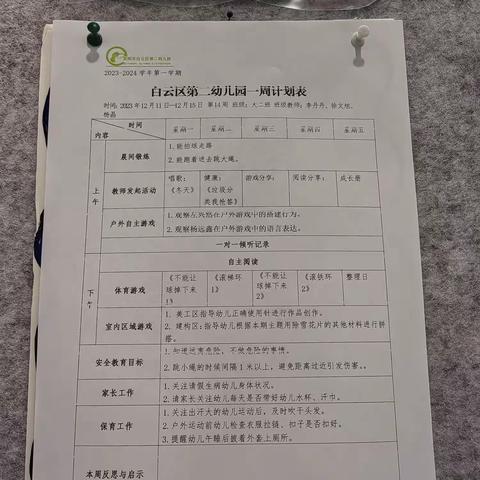 2023-2024 学年第一学期
白云区第二幼儿园一周计划表
时间: 2023年12月11日—12月15日 第14周 班级: 大二班 班级教师: 李丹丹、徐文旭、
杨晶
时间
内容
星期一 星期二 星期三 星期四 星期五
上午
晨间锻炼
1.能拍球走路
2.能跑着进去跳大绳。
教师发起活动
唱歌:
《冬天》
健康:
《垃圾分
类我抢答》
游戏分享:
阅读分享:
成长册
户外自主游戏
1.观察左兴然在户外游戏中的搭建行为。
2.观察杨远鑫在户外游戏中的语言表达。
一对一倾听记录
自主阅读
下午
体育游戏
《不能让
球掉下来
1》
《滚梯环
1》
《不能让
球掉下来
2》
《滚铁环
2》
整理日
室内区域游戏
1. 美工区指导幼儿正确使用针进行作品创作。
2. 建构区:指导幼儿根据本期主题用除雪花片的其他材料进行拼
搭。
安全教育目标
1.知道远离危险,不做危险的事情。
2.跳小绳的时候间隔1米以上,避免距离过近引发伤害。
家长工作
1.关注请假生病幼儿身体状况。
2.请家长关注幼儿每天是否带好幼儿水杯、汗巾。
保育工作
1.关注出汗大的幼儿运动后,及时吹干头发。
2.户外运动前幼儿检查衣服拉链、扣子是否扣好。
3.提醒幼儿午睡后披着外套上厕所。
本周反思与启示